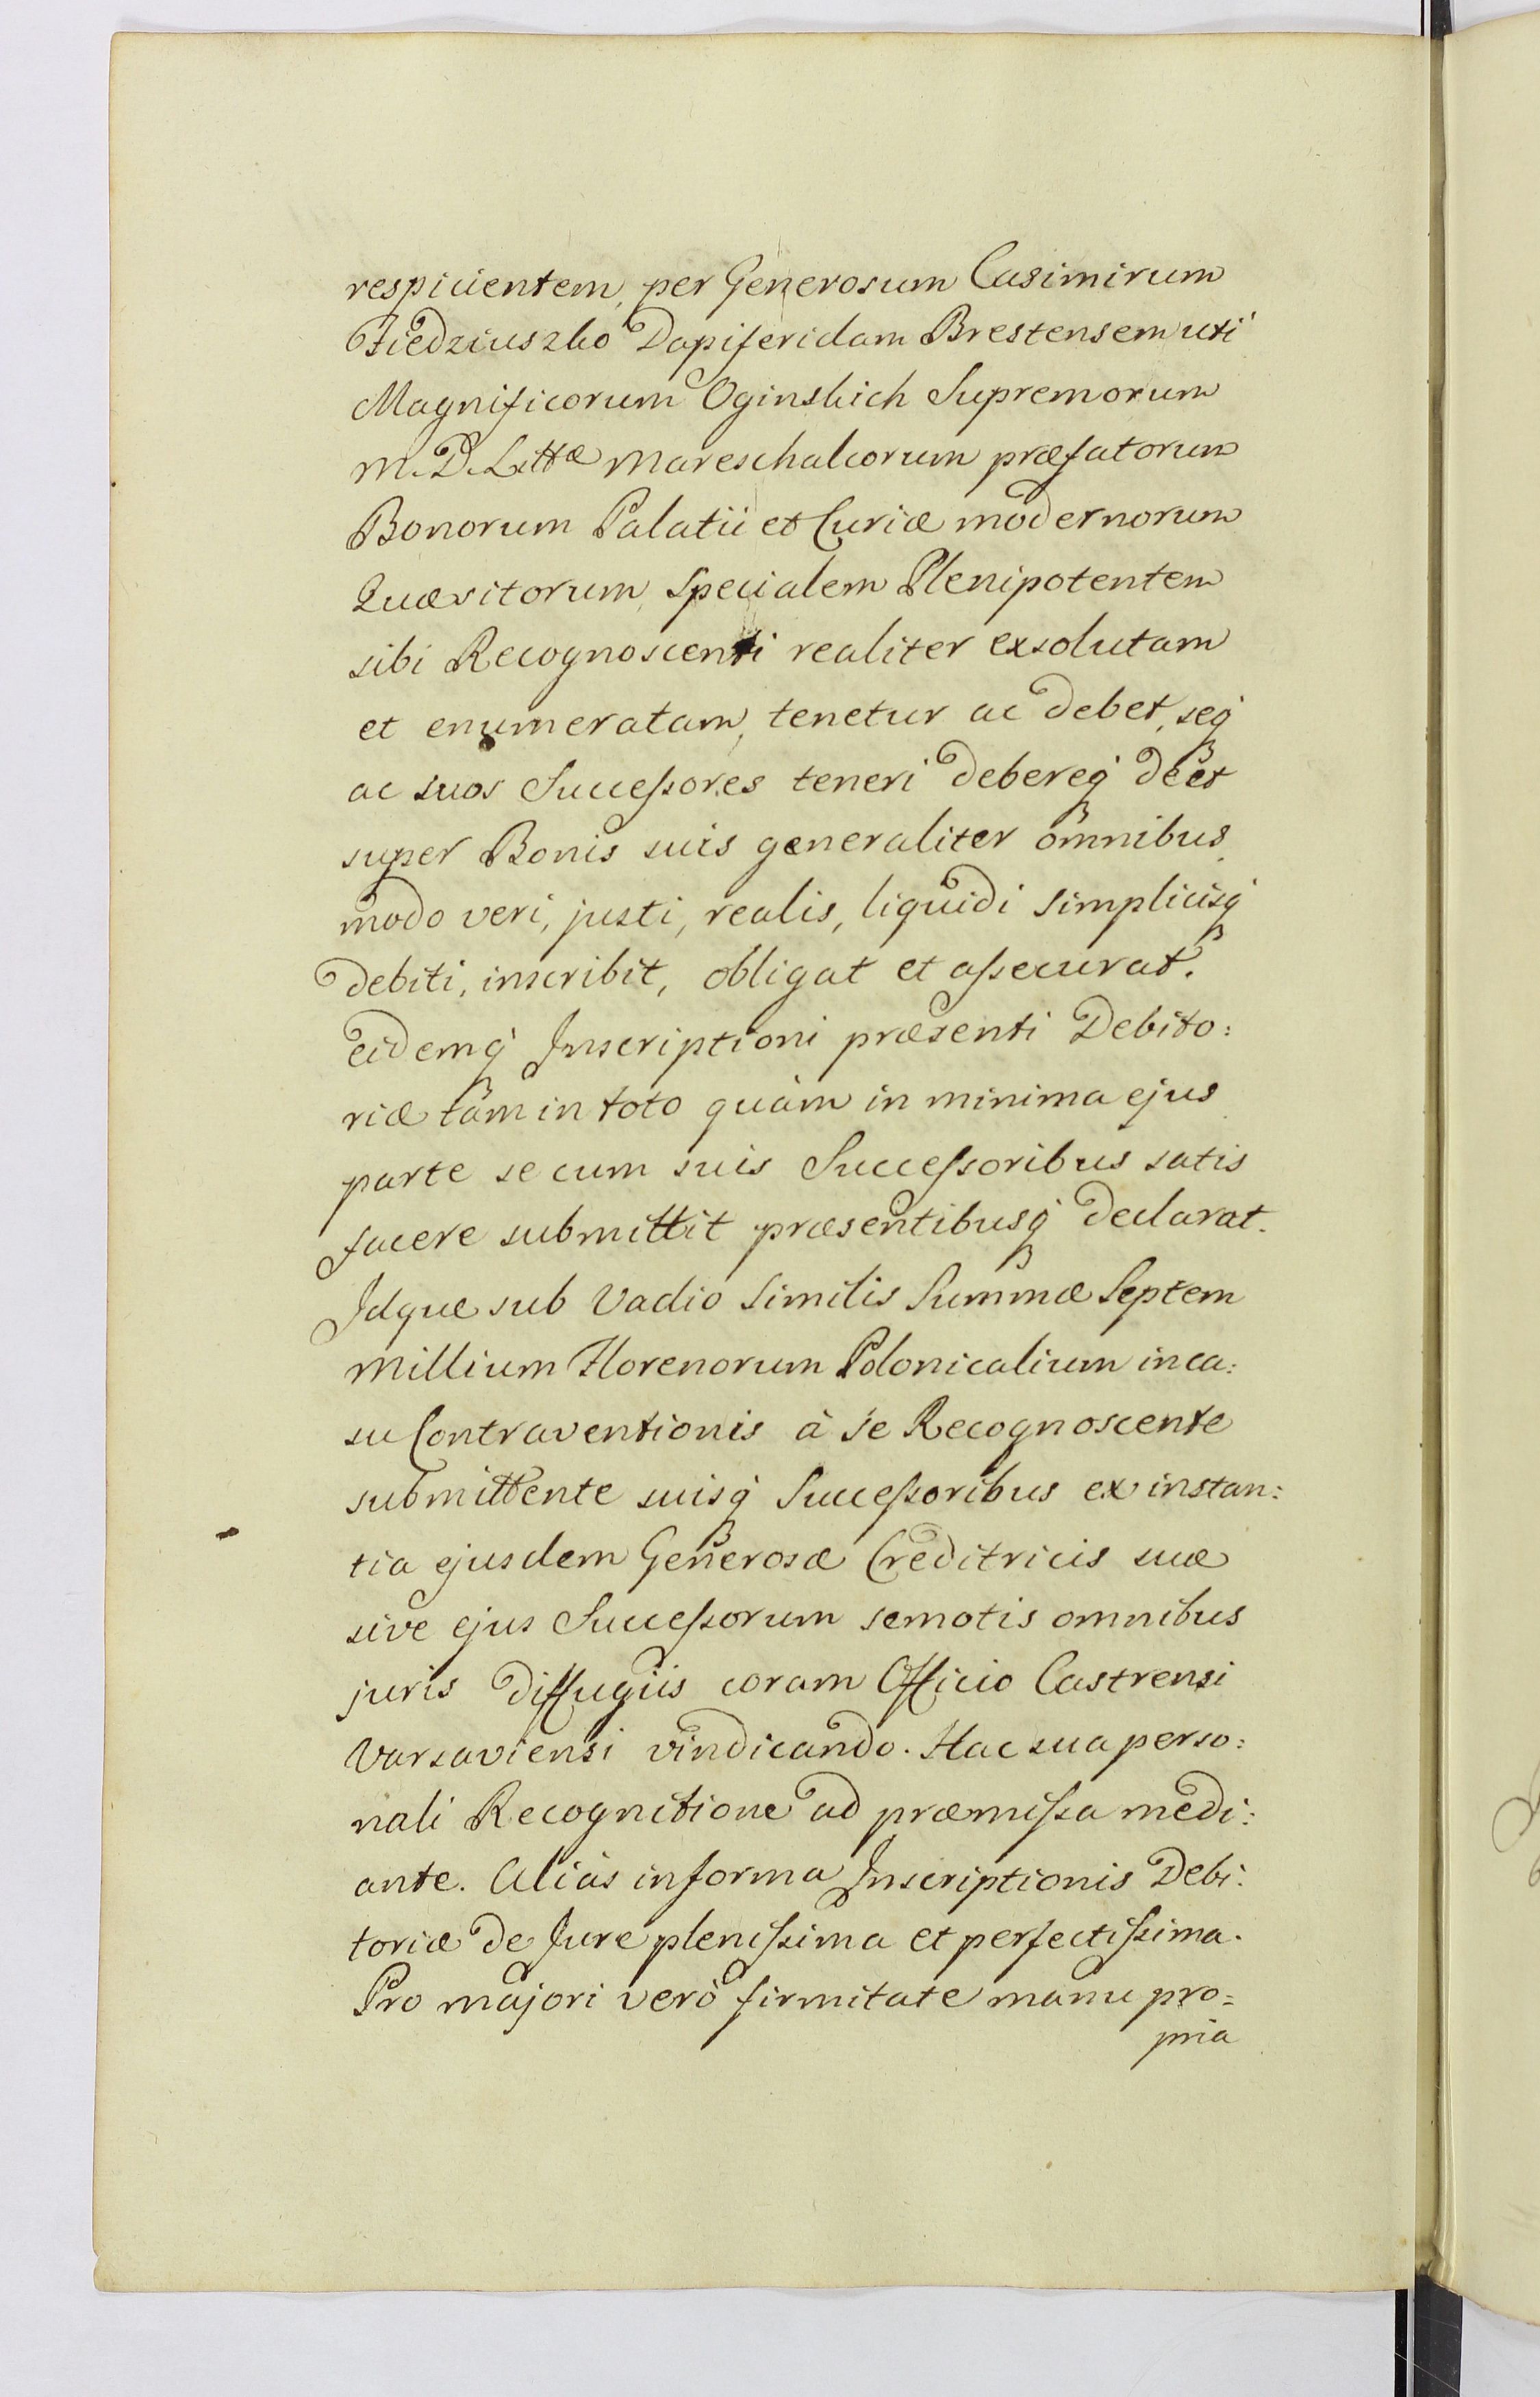 respicientem, per Generosum Casimirum
Fiedziuszko Dapiferidam Brestensem uti
Magnificorum Oginskich Supremorum
M. D. Littæ Mareschalcorum præfatorum
Bonorum Palatii et Curiæ modernorum
Quæsitorum, specialem Plenipotentem
sibi Recognoscenti realiter exsolutam
et enumeratam, tenetur ac debet, seq́
ac suos Succeſsores teneri debereq́ de et
super Bonis suis generaliter omnibus
modo veri, justi, realis, liquidi simplicisq́
debiti, inscribit, obligat et aſsecurat.
eidemq́ Inscriptioni præsenti Debito:
riæ tàm in toto quàm in minima ejus
parte se cum suis Succeſsoribus satis
facere submittit præsentibusq́ declarat.
Idque sub Vadio Similis Summæ Septem
Millium Florenorum Polonicalium in ca:
su Contraventionis à se Recognoscente
submittente suisq́ Succeſsoribus ex instan:
tia ejusdem Generosæ Creditricis suæ
sive ejus Succeſsorum semotis omnibus
juris diffugiis coram Officio Castrensi
Varsaviensi vindicando. Hac sua perso:
nali Recognitione ad præmiſsa medi:
ante. Aliàs in forma Inscriptionis Debi:
toriæ de Jure pleniſsima et perfectiſsima.
Pro majori verò firmitate manu pro=
pria